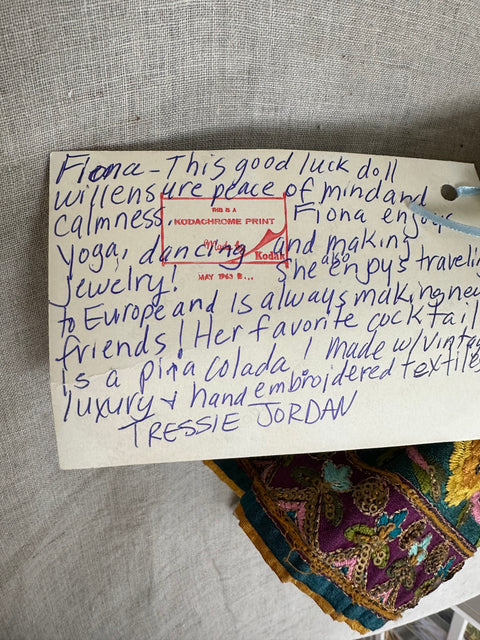 Fiona - This good luck doll
will ensure peace of mind and
calmness. Fiona enjoys
yoga, dancing and making
jewelry! She also enjoys traveling
to Europe and is always making new
friends! Her favorite cocktail
is a piña colada. I made w/ vintage
luxury & hand embroidered textiles
TRESSIE JORDAN
THIS IS A
KODACHROME PRINT
Made by
Kodak
MAY 1963